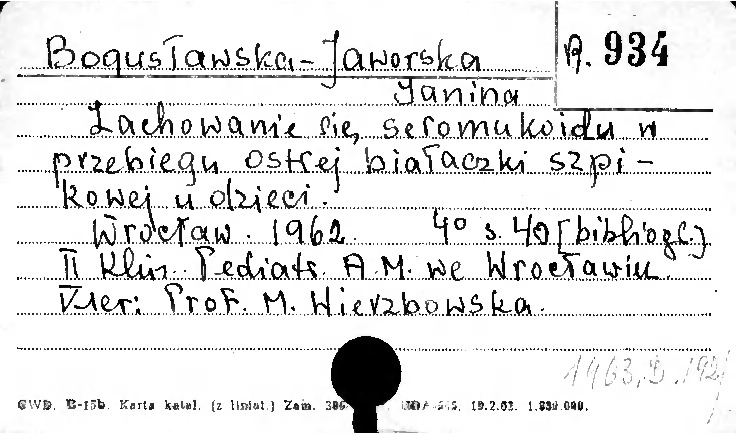 Bogusławska-Jaworska R. 934
Janina
Zachowanie się seromukoidu w
przebiegu ostrej białaczki szpi-
kowej u dzieci.
Wrocław. 1962 4° s. 40 [bibliogr.]
II Klin. Pediatr. A.M. we Wrocławiu
Prof. M. Wierzbowska.
1963.D.192
Karta katal. (z liniat.) Zam.